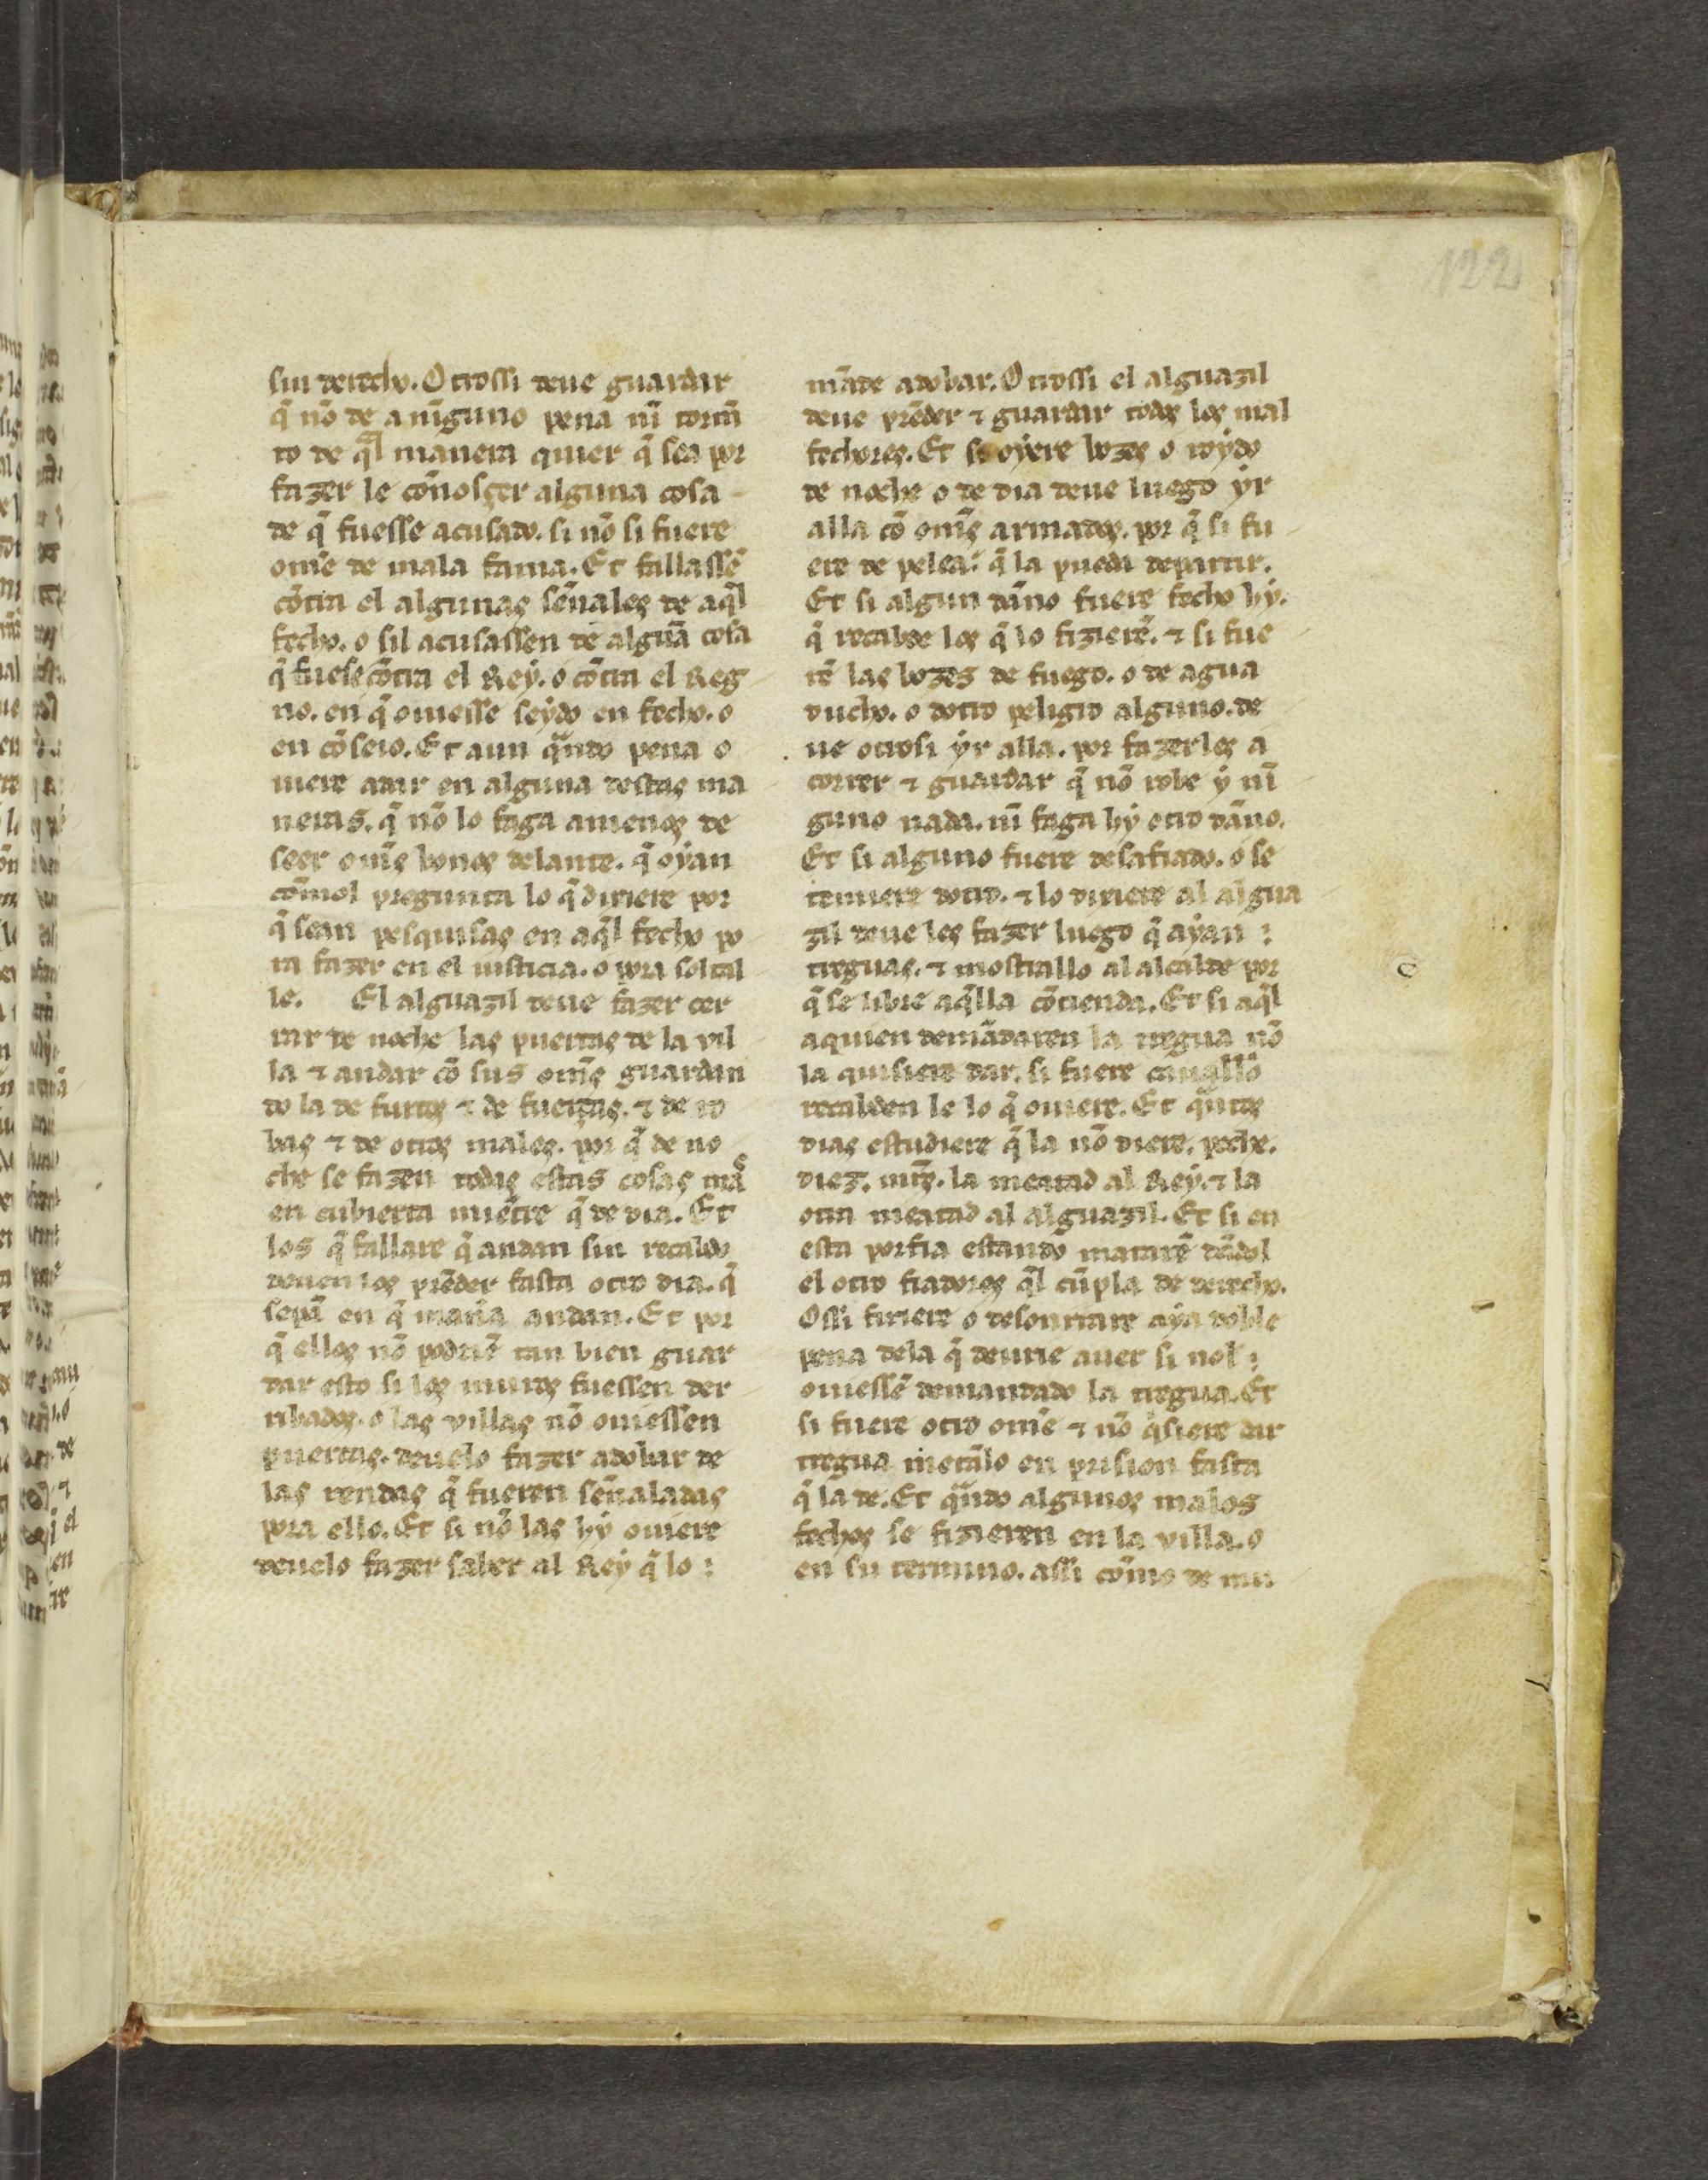 122
sin derecho. Otrossi deue guardar
q̃ nõ de a nĩguno pena nĩ tormẽ
to de q̃l manera quier q̃ sea por
fazer le cõnosçer alguna cosa
de q̃ fuesse acusado. si nõ si fuere
om̃e de mala fama. Et fallassẽ
cõtra el algunas señales de aq̃l
fecho. o sil acusassen de algũa cosa
q̃ fuese cõtra el Rey. o cõtra el Reg
no. en q̃ ouiesse seydo en fecho. o
en cõseio. Et aun q̃ndo pena o
uiere adar en alguna destas ma
neras. q̃ nõ lo faga amenos de
seer om̃s bonos delante. q̃ oyan
cõmol pregunta lo q̃ dixiere por
q̃ sean pesquisas en aq̃l fecho po
ra fazer en el iusticia. o pora soltal
le. El alguazil deue fazer cer
rar de noche las puertas de la vil
la ⁊ andar cõ sus om̃s guardan
do la de furtos ⁊ de fuerças. ⁊ de ro
bos ⁊ de otros males. por q̃ de no
che se fazen todas estas cosas mas
en cubierta miẽtre q̃ de dia. Et
los q̃ fallare q̃ andan sin recabdo
deuen los prẽder fasta otro dia. q̃
sepã en q̃ mañra andan. Et por
q̃ ellos nõ podriẽ tan bien guar
dar esto si los muros fuessen der
ribados. o las villas nõ ouiessen
puertas. deuelo fazer adobar de
las rendas q̃ fueren señaladas
pora ello. Et si nõ las hy ouiere
deuelo fazer saber al Rey q̃ lo :
mãde adobar. Otrossi el alguazil
deue prẽder ⁊ guardar todos los mal
fechores. Et si oyere bozes o roydo
de noche o de dia deue luego yr
alla cõ om̃s armados. por q̃ si fu
ere de pelea: q̃ la pueda departir.
Et si algun dãno fuere fecho hy.
q̃ recabde los q̃ lo fizierẽ. ⁊ si fue
rẽ las bozes de fuego. o de agua
ducho. o dotro peligro alguno. de
ue otrosi yr alla. por fazerles a
correr ⁊ guardar q̃ nõ robe y nĩ
guno nada. nĩ faga hy otro dãno.
Et si alguno fuere desafiado. o se
temiere dotro. ⁊ lo dixiere al algua
zil deue les fazer luego q̃ ayan :
treguas. ⁊ mostrallo al alcalde por
q̃ se libre aq̃lla cõtienda. Et si aq̃l
aquien demãdaren la tregua nõ
la quisiere dar. si fuere cauallo
recabden le lo q̃ ouiere. Et q̃ntos
dias estudiere q̃ la nõ diere. peche.
diez. mr̃s. la meatad al Rey. ⁊ la
otra meatad al alguazil. Et si en
esta porfia estando matarẽ dãdol
el otro fiadores q̃l cũpla de derecho.
Ossi firiere o desonrrare aya doble
pena dela q̃ deurie auer si nol :
ouiessẽ demandado la tregua. Et
si fuere otro om̃e ⁊ nõ q̃siere dar
tregua metãlo en prision fasta
q̃ la de. Et q̃ndo algunos malos
fechos se fizieren en la villa. o
en su termino. assi cõmo de mu